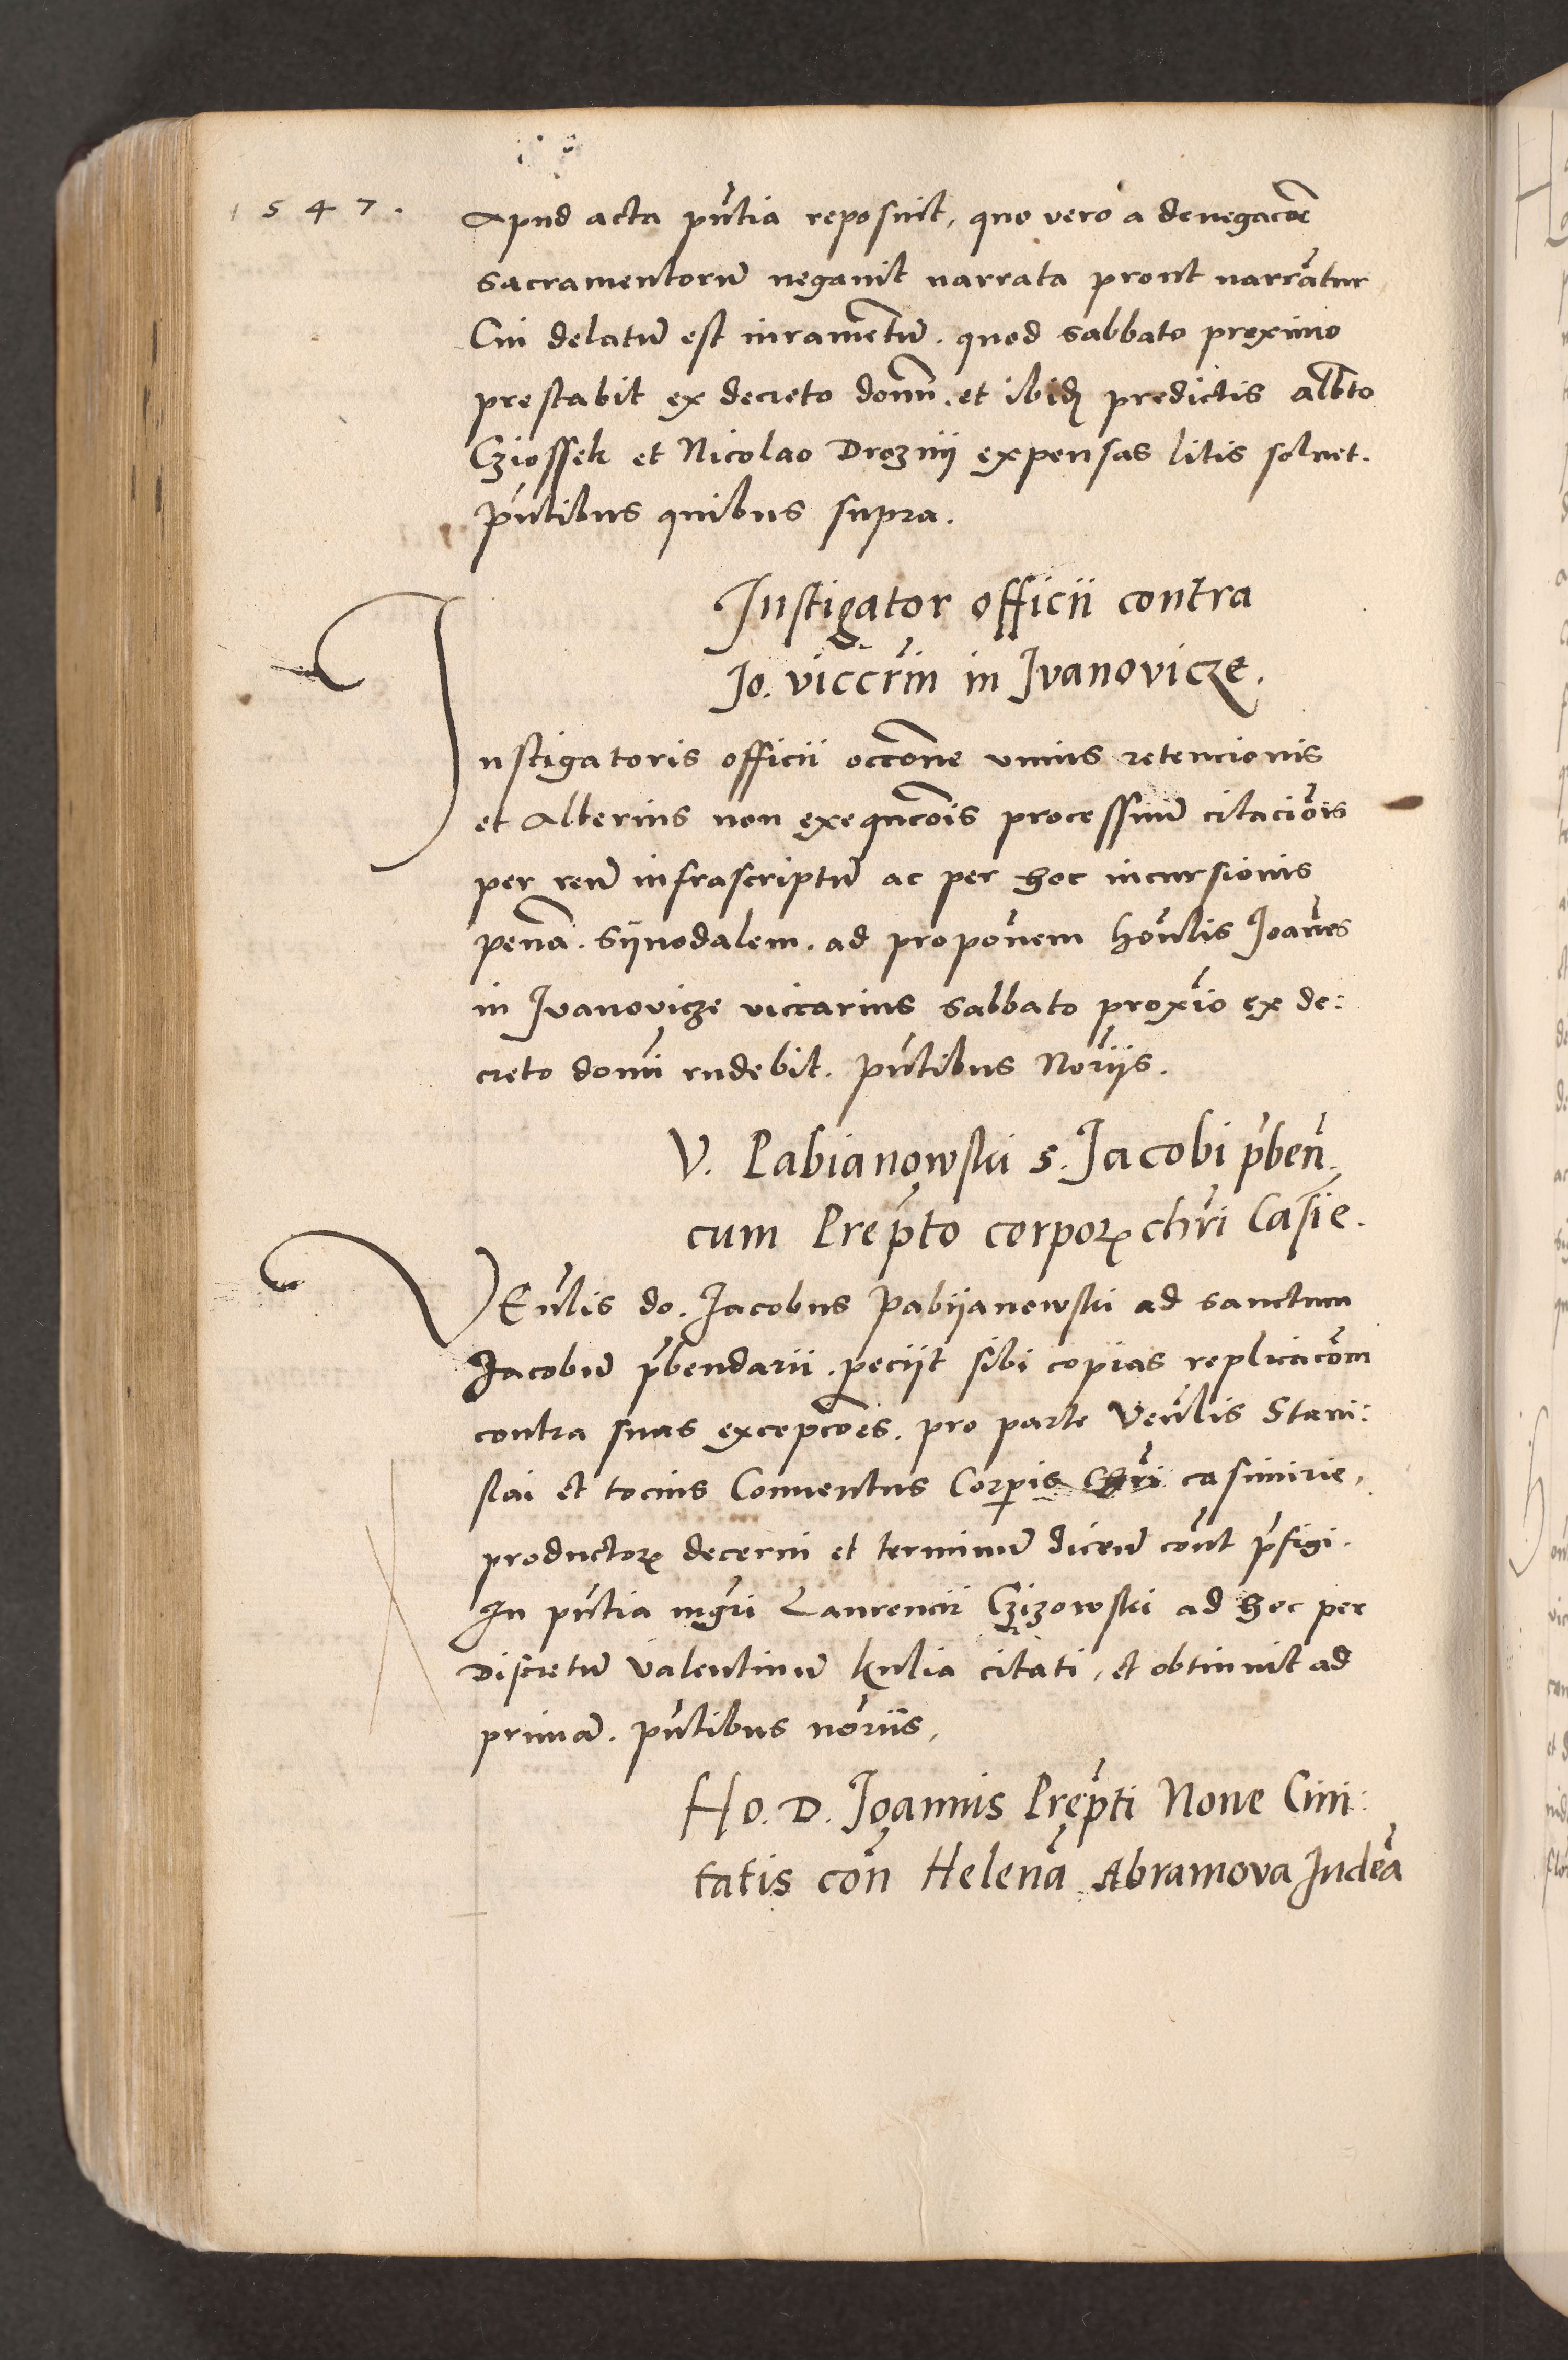 1547.
Apud acta pn̄tia reposuit, quo vero a denegacōe
sacramentorū negavit narrata prout narrātur,
Cui delatū est iuramētū. quod sabbato proximo
prestabit ex decreto domī. et ibidȝ predictis alb̄to
Cziossek et Nicolao Droznij expensas litis soluet.
pn̄tibus quibus supra.
Instigator officii contra
Jo. viccr̄m in Ivanovicze.
Instigatoris officii occōne vnius retencionis
et alterius non exequcōis processuum citaciōis
per reū infrascriptū ac per hoc incursionis
penā. sijnodalem. ad propōnem honlis Joānes
in Jvanovicze viccarius sabbato proxīo ex de:
creto domī rn̄debit. pn̄tibus Norijs.
V. Pabianowski s. Jacobi p̄ben̄.
cum Prep̄to corporꝫ chr̄i Casīe.
VEn̄lis do. Jacobus Pabijanowski ad sanctum
Jacobū p̄bendarii. peciit sibi copias replicacōm
contra suas excepcōes. pro parte Ven̄lis Stani:
slai et tocius Conuentus Corpīs Chr̄i casimirie,
productorꝫ decerni et terminū dicēū cōnt p̄figi.
In pn̄tia mgr̄i Laurencii Czizowski ad hoc per
Discretū Valentinū Kulia citati, et obtinuit ad
primā. pn̄tibus nōriis,
Ho. D. Joannis Prep̄ti Noue Ciui:
tatis cōn Helenā Abramova Judeā